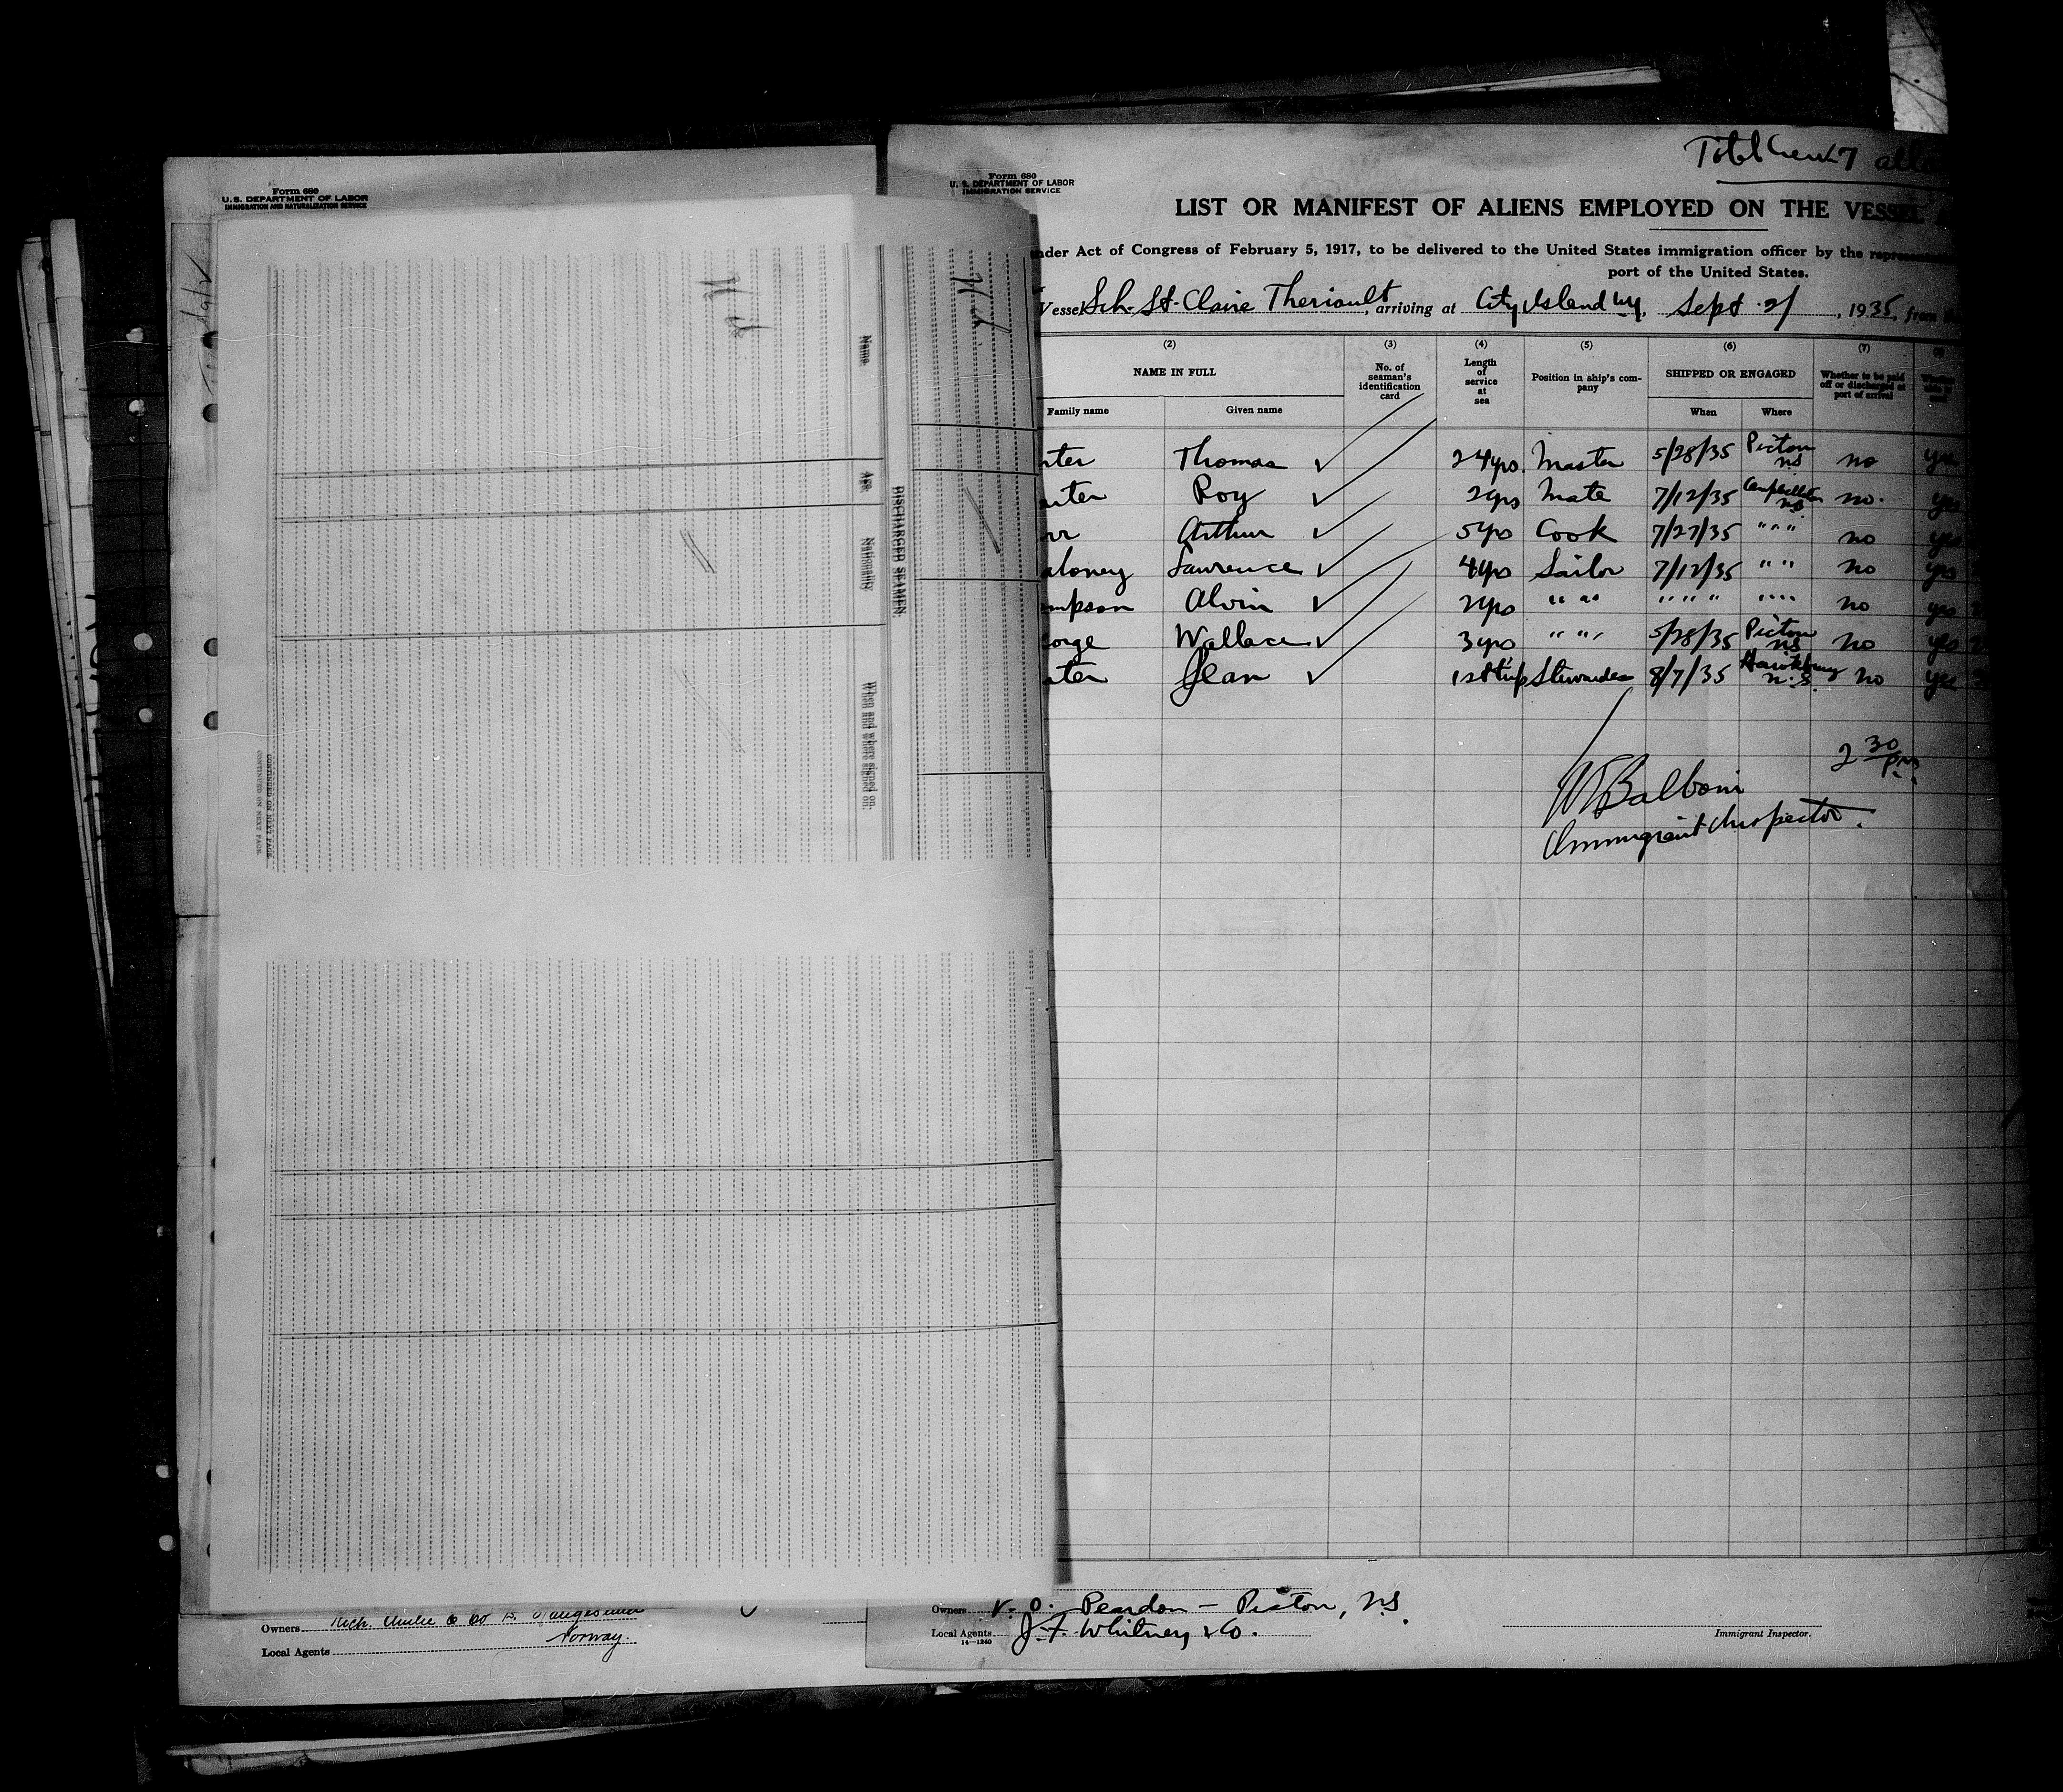 Form 680
U. S. DEPARTMENT OF LABOR
IMMIGRATION AND NATURALIZATION SERVICE
DISCHARGED SEAMEN.
Name
Age
Nationality
When and where signed on.
CONTINUED ON NEXT PAGE.
CONTINUED ON NEXT PAGE.
Owners
Norway
Local Agents
Total Crew 7
Form 680
U. S. DEPARTMENT OF LABOR
IMMIGRATION SERVICE
LIST OR MANIFEST OF ALIENS EMPLOYED ON THE VESSEL
nder Act of Congress of February 5, 1917, to be delivered to the United States immigration officer by the
port of the United States.
Vessel Sch. St. Claire Theriault, arriving at City Island N.Y. Sept 21, 1935, from
(2) (3) (4) (5) (6) (7) (8)
NAME IN FULL No. of seaman's identification card Length of service at sea Position in ship's company SHIPPED OR ENGAGED Whether to be paid off or discharged at port of arrival
Family name Given name When Where
rter Thomas ✓ 24yrs. Master 5/28/35 Pictou NS no yes
arter Roy ✓ 2yrs Mate 7/12/35 Campbellton no. yes
rr Arthur ✓ 5yrs Cook 7/27/35 " " " no yes
aloney Lawrence ✓ 4yrs Sailor 7/12/35 " " no yes
mpson Alvin ✓ 2yrs " " " " " " " " no yes
eorge Wallace ✓ 3yrs " " 5/28/35 Pictou NS no yes
rter Jean ✓ 1st trip Stewardess 8/7/35 Hawkbury N.S. no yes
2 30 P.M.
Balboni
Immigrant Inspector.
Owners V. O. Peardon - Pictou, N.S.
Local Agents J. F. Whitney & Co.
14—1240
Immigrant Inspector.